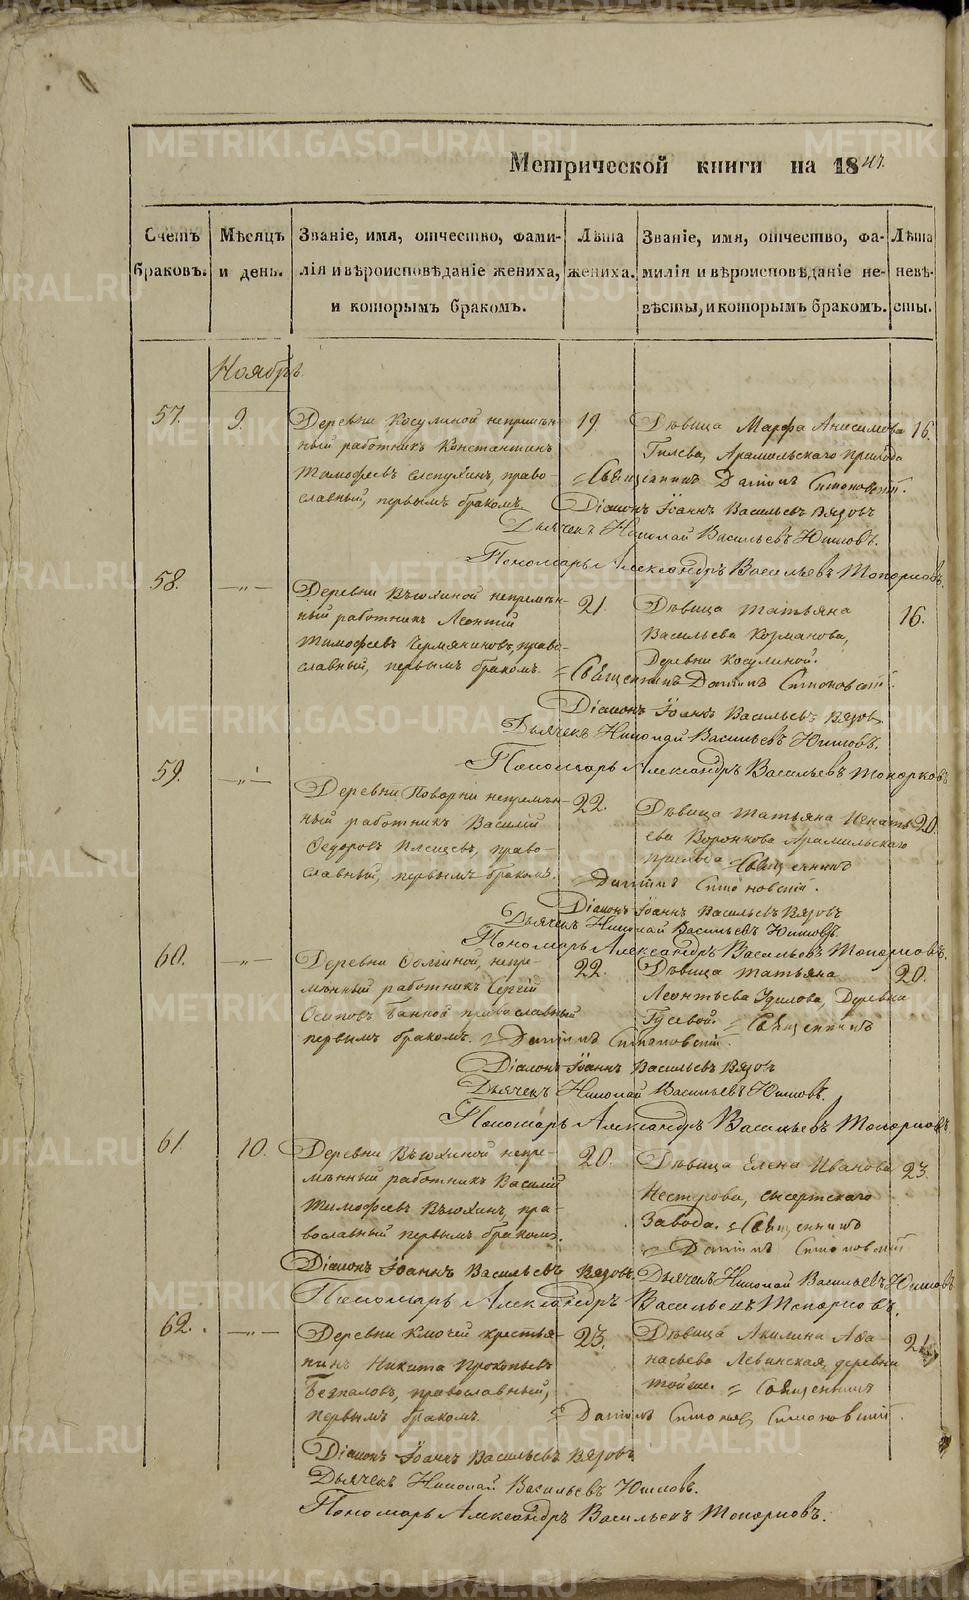 Метрической книги на 18
Счетъ браковъ.
Мѣсяцъ и день.
Званіе, имя, отчество, фами-
лія и вѣроисповѣданіе жениха,
и которымъ бракомъ.
Лѣта жениха.
Званіе, имя, отчество, фа-
милія и вѣроисповѣданіе не-
вѣсты, и которымъ бракомъ.
Лѣта невѣ-
сты.
Ноябрь
57. 9.
Деревни Косулиной непремѣн-
ный работникъ Константинъ
Тимофеевъ право-
славный, первымъ бракомъ
19.
Дѣвица Марфа Анисимова
Гилева, Арамильскаго прихода
16.
Священникъ Симоновскій.
Діаконъ Іоаннъ Васильевъ Вязовъ
Дьячекъ Николай Васильевъ
Пономарь Александръ Васильевъ Топорковъ
58. —„—
Деревни Вьюхиной непремѣн-
ный работникъ Леонтій
Тимофеевъ право-
славный, первымъ бракомъ.
21.
Дѣвица Татьяна
Васильева
Деревни Косулиной.
16.
Священникъ Симоновскій.
Діаконъ Іоаннъ Васильевъ Вязовъ
Дьячекъ Николай Васильевъ
Пономарь Александръ Васильевъ Топорковъ
59. —„—
Деревни Поварни непремѣн-
ный работникъ Василій
Федоровъ Плещевъ, право-
славный, первымъ бракомъ
22.
Дѣвица Татьяна Игнать-
ева Воронкова Арамильскаго
прихода
20.
Священникъ
Симоновскій.
Діаконъ Іоаннъ Васильевъ Вязовъ
Дьячекъ Николай Васильевъ
Пономарь Александръ Васильевъ Топорковъ.
60. —„—
Деревни непре-
мѣнный работникъ Сергій
Осиповъ православный
первымъ бракомъ.
22.
Дѣвица Татьяна
Леонтьева Деревни
Гусевой.
20.
Священникъ
Симоновскій.
Діаконъ Іоаннъ Васильевъ Вязовъ
Дьячекъ Николай Васильевъ
Пономарь Александръ Васильевъ Топорковъ
61. 10.
Деревни Вьюхиной непре-
мѣнный работникъ Василій
Тимофеевъ Вьюхинъ, пра-
вославный первымъ бракомъ.
20.
Дѣвица Елена Иванова
Нестерова, Сысертскаго
Завода.
23.
Священникъ
Симоновскій
Діаконъ Іоаннъ Васильевъ Вязовъ. Дьячекъ Николай Васильевъ
Пономарь Александръ Васильевъ Топорковъ.
62. —„—
Деревни Ключей крестья-
нинъ Никита Прокопьевъ
православный,
первымъ бракомъ.
23.
Дѣвица Акилина Афа-
насьева Левинская, деревни
тойже.
Священникъ
Симоновскій.
Діаконъ Іоаннъ Васильевъ Вязовъ
Дьячекъ Николай Васильевъ
Пономарь Александръ Васильевъ Топорковъ.
METRIKI.GASO-URAL.RU